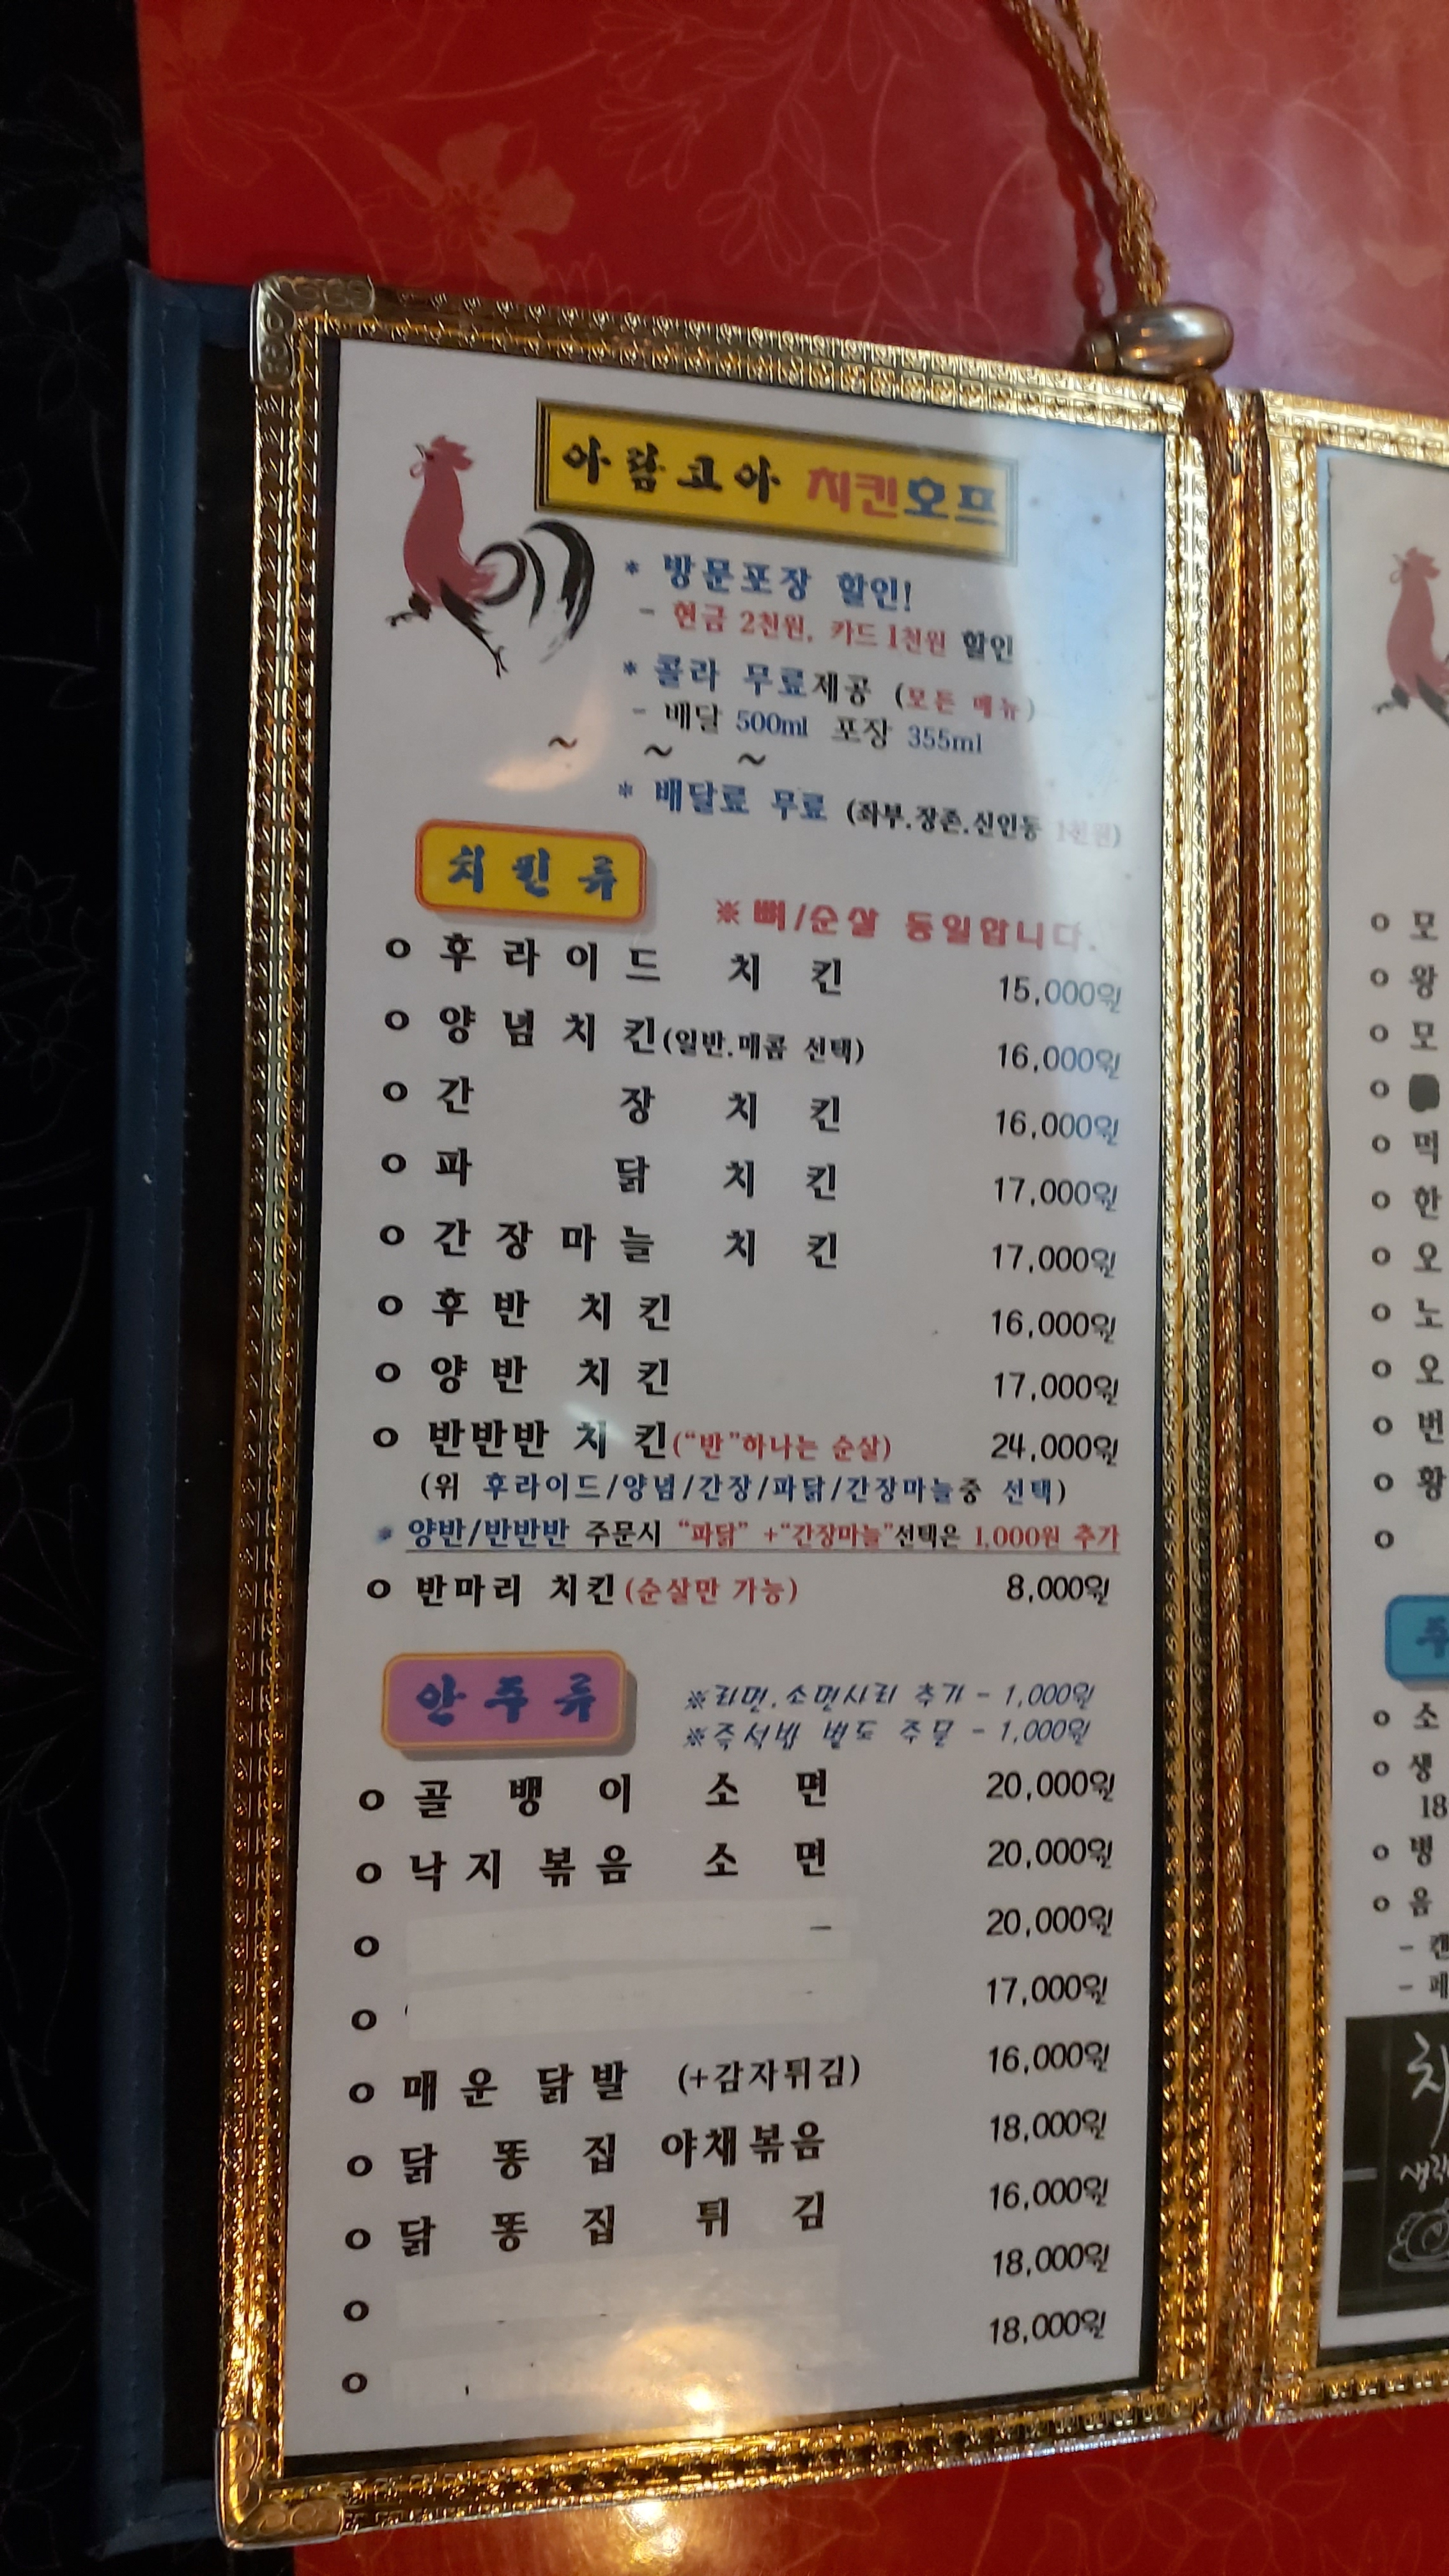 아람코아 치킨호프
* 방문포장 할인!
- 현금 2천원, 카드 1천원 할인
* 콜라 무료제공 (모든 메뉴)
- 배달 500ml 포장 355ml
~ ~ ~
* 배달료 무료 (좌부.장존.신인동 1천원)
치킨류
※ 뼈/순살 동일합니다.
o 후라이드 치킨 15,000원
o 양념치킨(일반.매콤 선택) 16,000원
o 간장치킨 16,000원
o 파닭치킨 17,000원
o 간장마늘 치킨 17,000원
o 후반 치킨 16,000원
o 양반 치킨 17,000원
o 반반반 치킨("반"하나는 순살) 24,000원
(위 후라이드/양념/간장/파닭/간장마늘중 선택)
* 양반/반반반 주문시 "파닭" +"간장마늘"선택은 1,000원 추가
o 반마리 치킨(순살만 가능) 8,000원
안주류
※라면.소면사리 추가 - 1,000원
※즉석밥 별도 주문 - 1,000원
o 골뱅이 소면 20,000원
o 낙지볶음 소면 20,000원
o 20,000원
o 17,000원
o 매운 닭발 (+감자튀김) 16,000원
o 닭똥집 야채볶음 18,000원
o 닭똥집 튀김 16,000원
o 18,000원
o 18,000원
o 모
o 왕
o 모
o
o 먹
o 한
o 오
o 노
o 오
o 번
o 황
o
주
o 소
o 생
18
o 병
o 음
- 캔
- 페